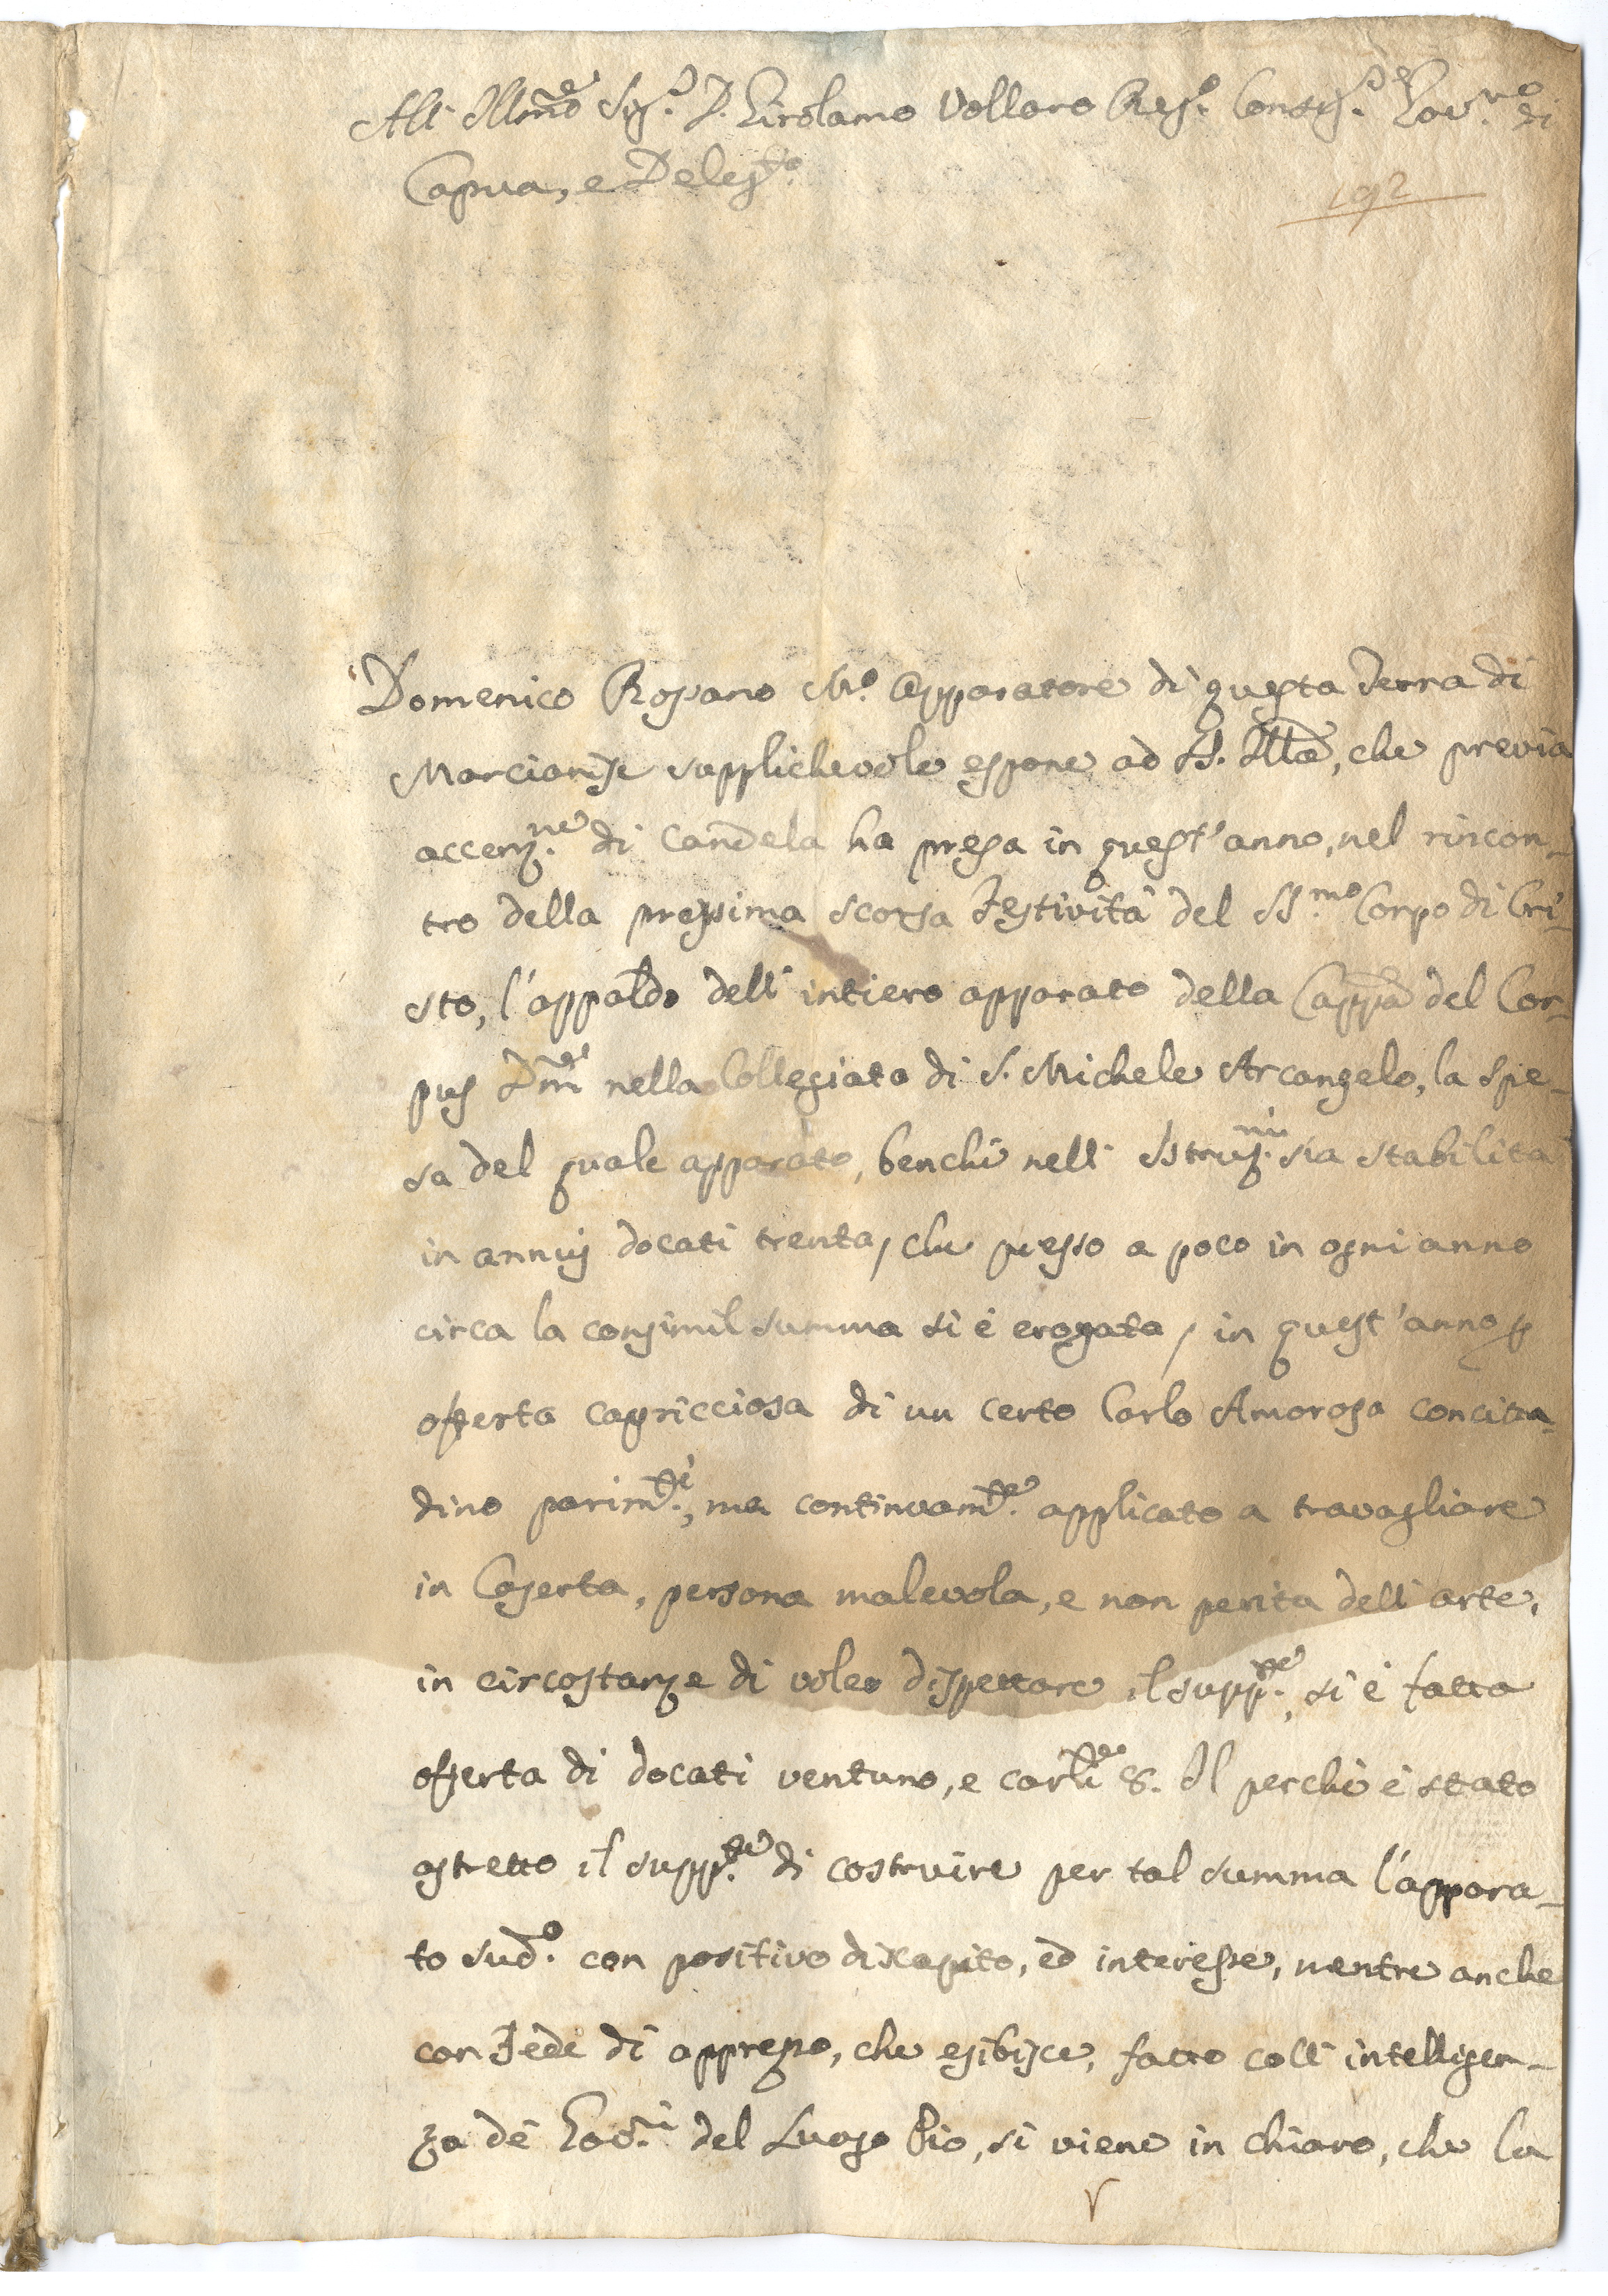 All' Ill.mo Sig.r D. Girolamo Vollaro Reg.o Consig.re Gov.re di
Capua, e Deleg.to
192
Domenico Rossano M.o Apparatore di questa Terra di
Marcianise supplichevole espone ad V.S. Ill.ma, che previa
accenz.ne di Candela ha presa in quest'anno, nel rincon-
tro della prossima scorsa Festività del SS.mo Corpo di Cri-
sto, l'appaldo dell' intiero apparato della Capp.a del Cor-
pus Dni nella Collegiata di S. Michele Arcangelo, la spe-
sa del quale apparato, benche nell' Istruz.ni sia stabilita
in annuj docati trenta, che presso a poco in ogni anno
circa la consimil summa si è erogata, in quest'anno p
offerta capricciosa di un certo Carlo Amoroso concitta-
dino parim.ti, ma continuam.te applicato a travagliare
in Caserta, persona malevola, e non perita dell' arte,
in circostanze di voler dispettare il supp.te, si è fatta
offerta di docati ventuno, e carli 8. Il perche è stato
astretto il supp.te di costruire per tal summa l'appara-
to sud.o con positivo discapito, ed interesse, mentre anche
con Fede di apprezzo, che esibisce, fatto coll' intelligen-
za de' Gov.ri del Luogo Pio, si viene in chiaro, che la